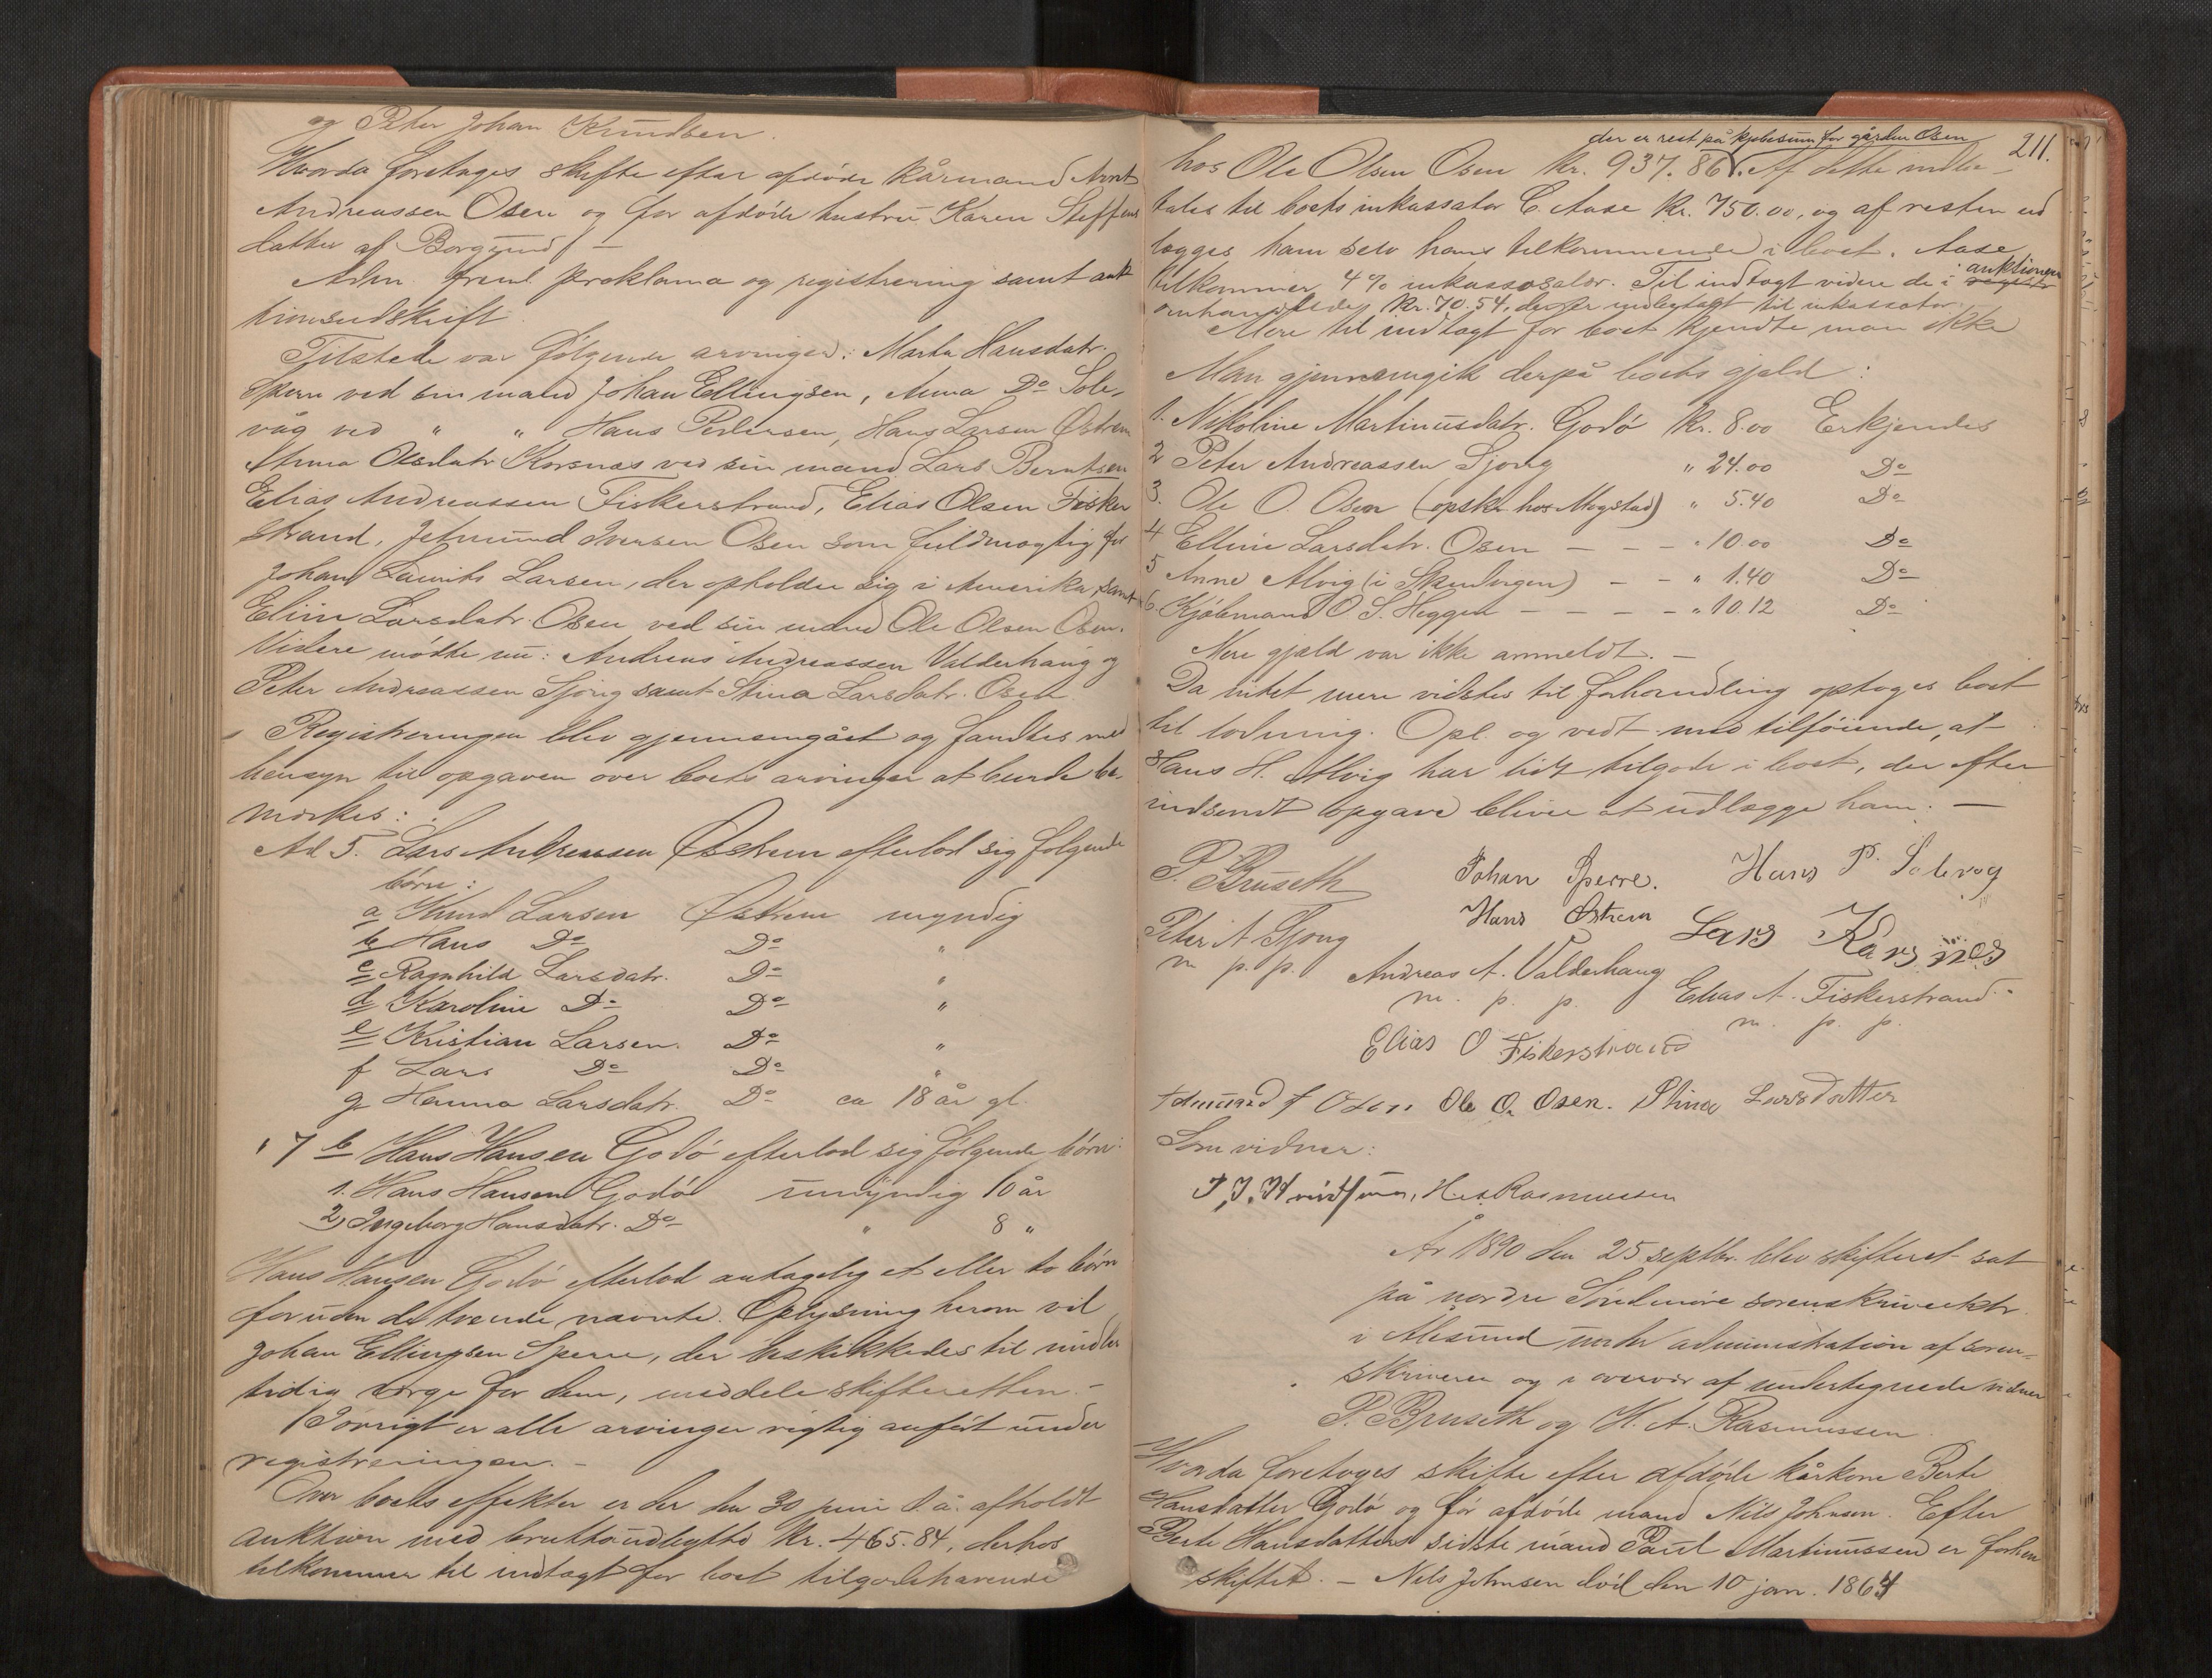 og Peter Johan Knudsen.
Hvorda foretages skifte efter afdöde kårmand Arnt
Andreassen Osen og för afdöde hustru Karen Steffens
datter af Borgund. —
Adm. freml. proklama og registrering samt auk
tionsudskrift.
Tilstede var følgende arvinger: Marta Hansdatr.
Sperre ved sin mand Johan Ellingsen, Anna Do Sole-
våg ved " " Hans Pedersen, Hans Larsen Østrem
Olsdatr. Korsnæs ved sin mand Lars Berntsen
Elias Andreassen Fiskerstrand, Elias Olsen Fisker
strand, Jetmund Iversen Osen som fuldmægtig for
Johan Laurits Larsen, der opholder sig i Amerika, samt
Eline Larsdatr. Osen ved sin mand Ole Olsen Osen.
Videre mödte nu: Andreas Andreassen Valderhaug og
Peter Andreassen Sjong samt Stina Larsdatr. Osen.
Registreringen blev gjennemgået og fandtes med
hensyn til opgaven over boets arvinger at burde be-
mærkes:
Ad 5. Lars Andreassen Østrem efterlod sig følgende
börn:
a Knud Larsen Østrem myndig
b Hans Do Do "
c Ragnhild Larsdatr. Do "
d Karoline Do Do "
e Kristian Larsen. Do "
f Lars Do Do "
g Hanna Larsdatr. Do ca 18 år gl.
" 7 b Hans Hansen Godö efterlod sig følgende börn:
1. Hans Hansen Godö umyndig 10 år
2, Ingeborg Hansdatr. Do " 8 "
Hans Hansen Godö efterlod antagelig et eller to börn
foruden de tvende nævnte. Oplysning herom vil
Johan Ellingsen Sperre, der beskikkedes til midler
tidig værge for dem, meddele skifteretten. —
Iövrigt er alle arvinger rigtig anfört under
registreringen. —
Over boets effekter er der den 30 juni d. å. afholdt
auktion med bruttoudbytte Kr. 465.84, derhos
tilkommer til indtægt for boet tilgodehavende
211.
der er rest på kjøbesum for gården Osen
hos Ole Olsen Osen Kr. 937.86. Af dette indbe-
tales til boets inkassator C. Aase Kr. 750.00, og af resten ud
lægges ham selv hans tilkommende i boet. Aase
tilkommer 4 % inkassosalær. Til indtægt videre de i auktionen
omhandlede Kr. 70.54, der er indbetalt til inkassator.
Mere til indtægt for boet kjendte man ikke
Man gjennemgik derpå boets gjæld:
1. Nikoline Martinusdatr. Godö Kr. 8.00 Erkjendes
2 Peter Andreassen Sjong " 24.00 Do
3. Ole O. Osen (opskr. hos Mogstad) " 5.40 Do
4 Elline Larsdatr. Osen — — — " 10.00 Do
5 Anne Alvig (i Skudvegen) — — " 1.40 Do
6 Kjöbmand O. S. Heggen — — — — " 10.12 Do
Mere gjæld var ikke anmeldt. —
Da intet mere vidstes til forhandling optoges boet
til lodning. Opl. og vedt. med tilföiende, at
Hans H. Alvig har lidt tilgode i boet, der efter
indsendt opgave bliver at udlægge ham. —
P. Bruseth Johan Sperre. Hans P. Solevog
Hans Østrem Lars Karsnes
Peter A Sjong
m. p. p. Andreas A. Valderhaug
m. p. p. Elias A. Fiskerstrand
m. p. p.
Elias O Fiskerstrand
Jetmund I Osen Ole O. Osen. Stina Larsdatter
Som vidner:
P. J. Knudsen, H. A. Rasmussen
År 1890 den 25 septbr. blev skifteret sat
på nordre Söndmöre sorenskriverktr.
i Ålesund under administration af soren-
skriveren og i overvær af undertegnede vidner
P. Bruseth og H. A. Rasmussen.
Hvorda foretoges skifte efter afdöde kårkone Berte
Hansdatter Godö og för afdöde mand Nils Johnsen. Efter
Berte Hansdatters sidste mand Paul Martinussen er forhen
skiftet. — Nils Johnsen döde den 10 jan. 1864